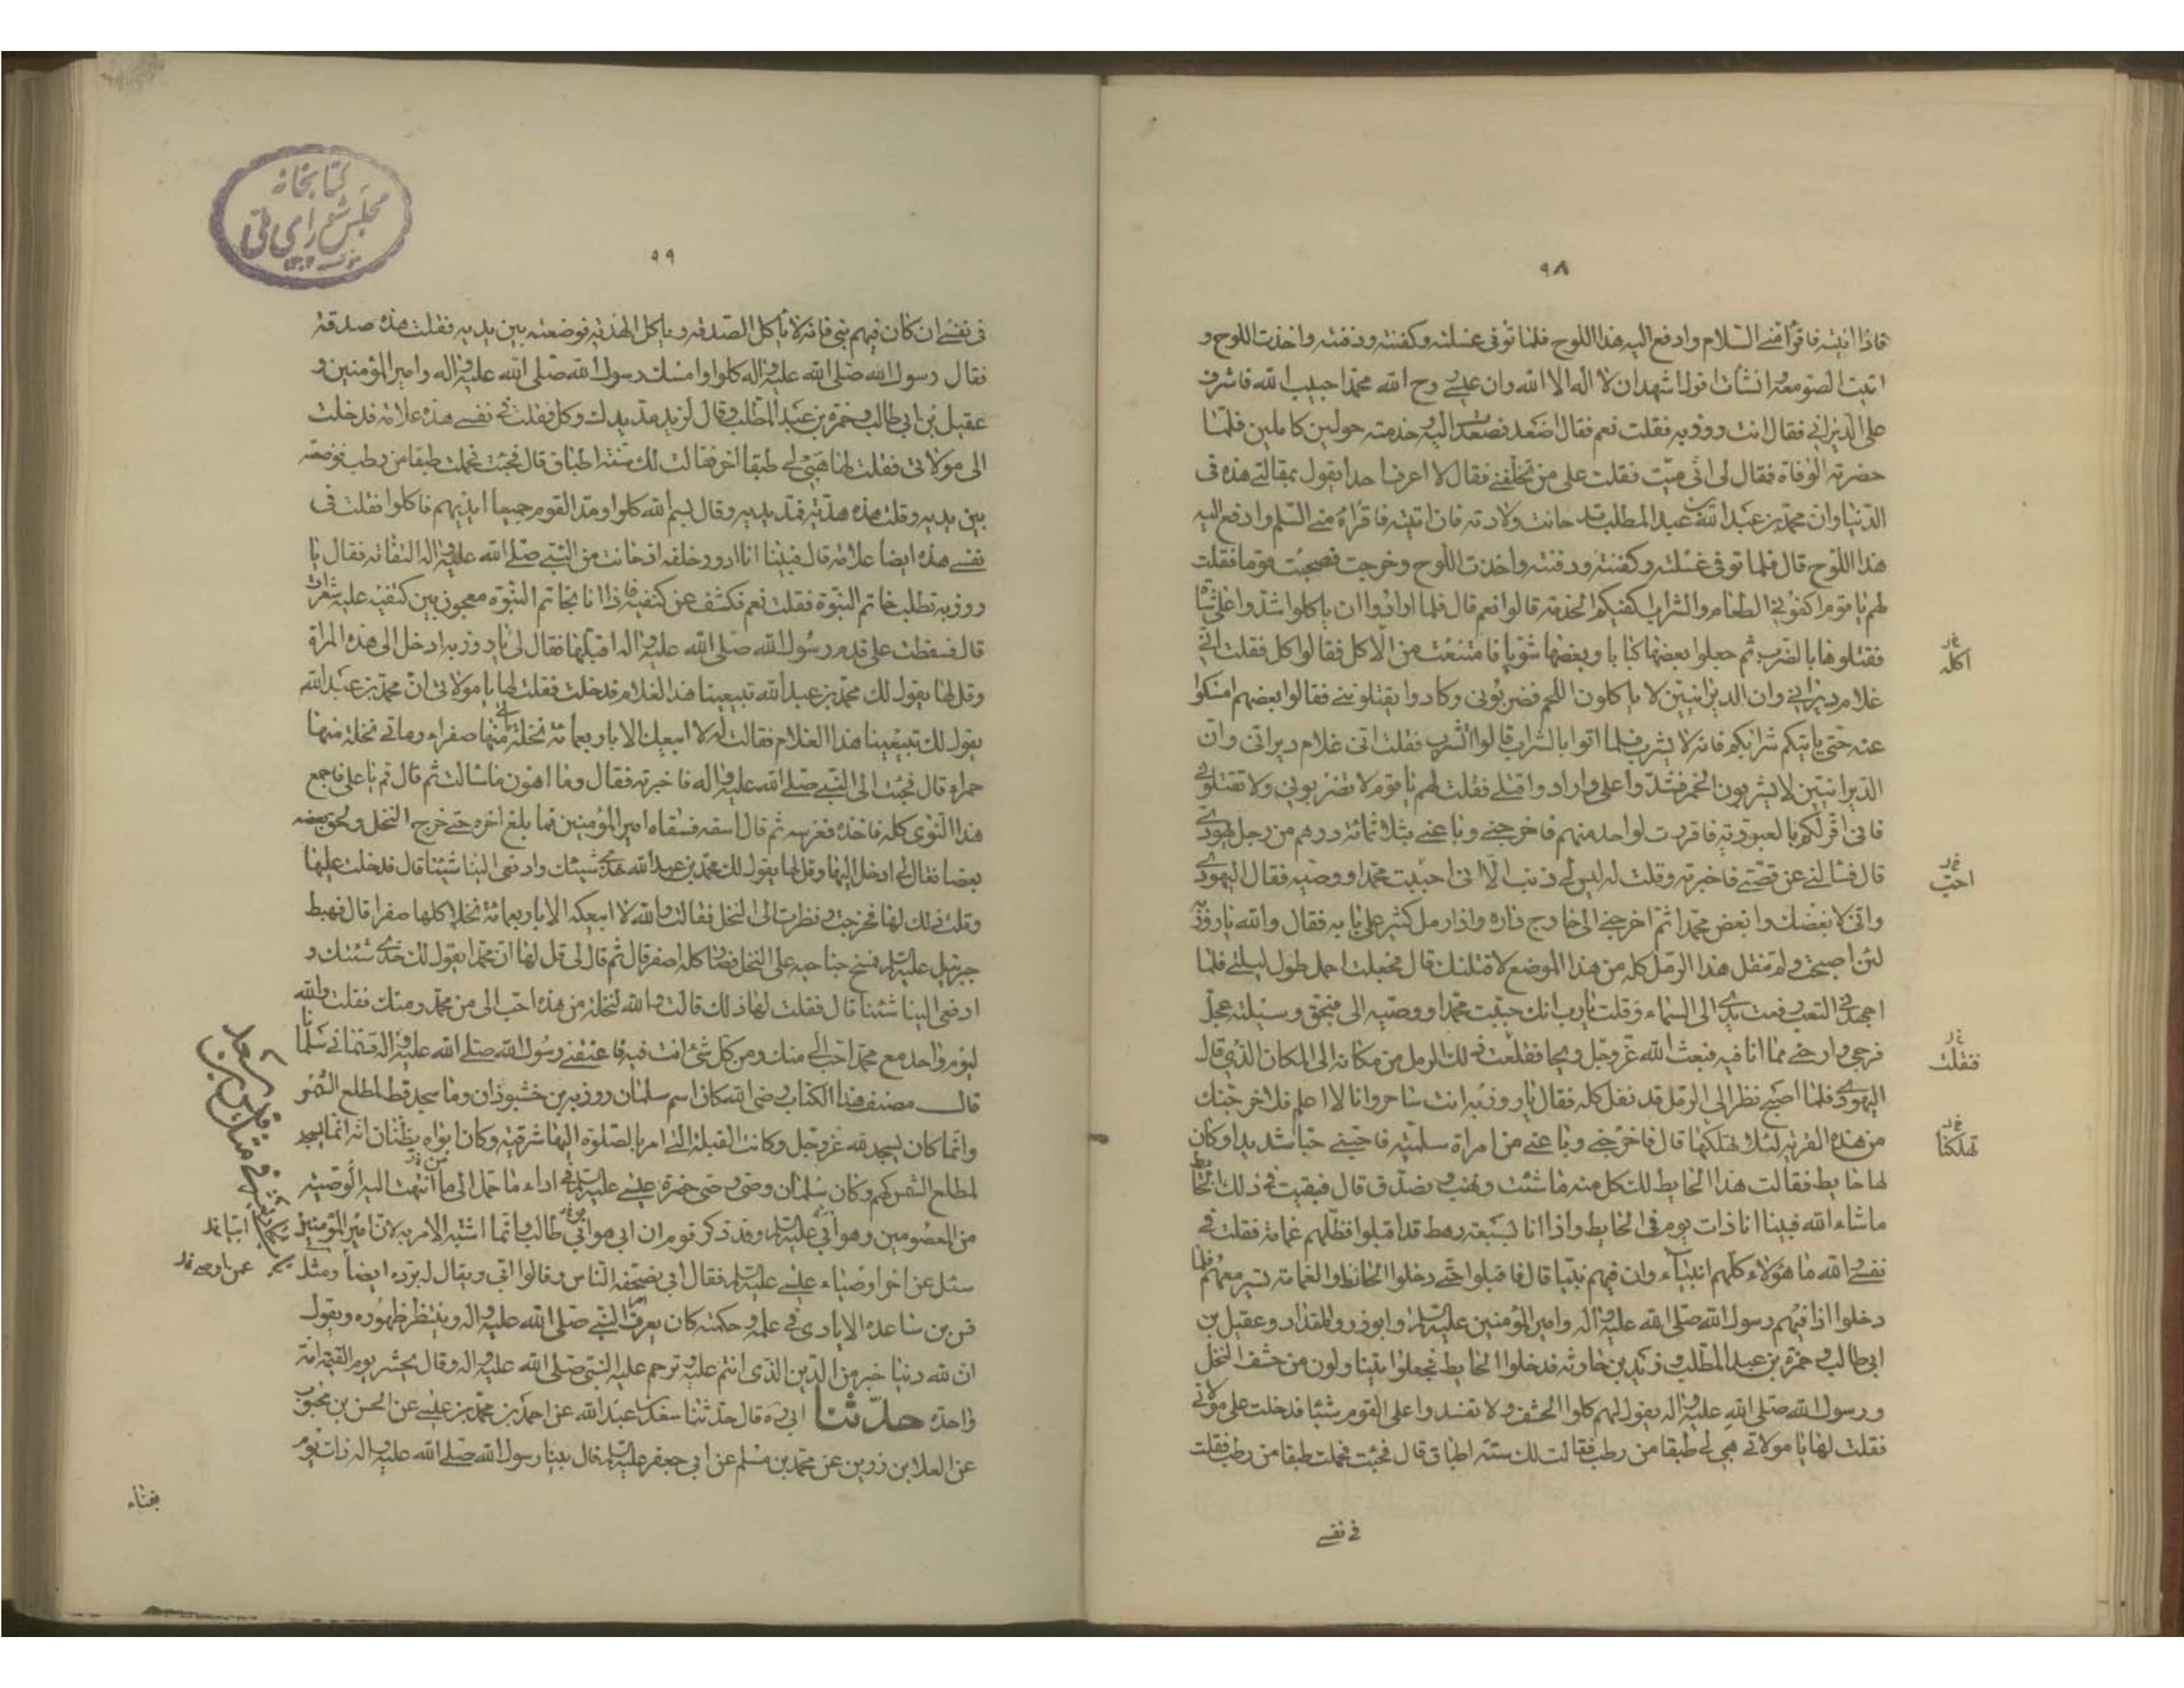 ٩٨
فاذا اتيته فاقرأه منى السّلام وادفع اليه هذا اللوح فلما توفى غسلته وكفنته ودفنته واخذت اللوح و
اتيت الصومعة وانشأت اقول اشهد ان لا اله الا الله وان عيسى روح الله محمدا حبيب الله فاشرف
على الديرانى فقال انت روزبه فقلت نعم فقال اصعد فصعدت اليه وخدمته حولين كاملين فلمّا
حضرته الوفاة فقال لى انى ميّت فقلت على من تخلّفنى فقال لا اعرف احدا يقول بمقالتى هذه فى
الدّنيا وان محمّد بن عبد الله بن عبد المطلب قد حانت ولادته فان اتيته فاقرأه منى السّلم وادفع اليه
هذا اللّوح قال فلما توفى غسّلته وكفنته ودفنته واخذت اللّوح وخرجت فصحبت قوما فقلت
لهم يا قوم اكفونى الطعام والشراب اكفيكم الخدمة قالوا نعم قال فلما ارادوا ان ياكلوا شدّوا على شاة
فقتلوها بالضرب ثم جعلوا بعضها كبابا وبعضها شويا فامتنعت من الاكل فقالوا كل فقلت انّى
غلام ديرانى وان الديرانيين لا ياكلون اللحم فضربونى وكادوا يقتلوننى فقالوا بعضهم امسكوا
عنه حتى ياتيكم شرابكم فانه لا يشرب فلما اتوا بالشراب قالوا اشرب فقلت انى غلام ديرانى وان
الديرانيين لا يشربون الخمر فشدّوا على وارادوا قتلى فقلت لهم يا قوم لا تضربونى ولا تقتلونى
فانى اقرّ لكم بالعبوديّة فاقررت لواحد منهم فاخرجنى وباعنى بثلاثمائة درهم من رجل يهودى
قال فسألنى عن قصّتى فاخبرته وقلت له ليس لى ذنب الّا انى احببت محمدا ووصيه فقال اليهودى
وانّى لابغضك وابغض محمّدا ثم اخرجنى الى خارج داره واذا رمل كثير على بابه فقال والله يا روزبه
لئن اصبحت ولم تنقل هذا الرمل كله من هذا الموضع لاقتلنك قال فجعلت احمل طول ليلتى فلما
اجهدنى التعب رفعت يدى الى السماء وقلت يا رب انك حببت محمّدا ووصيه الى فبحق وسيلته عجّل
فرجى وارحنى مما انا فيه فبعث الله عزّوجل ريحا فقلعت ذلك الرمل من مكانه الى المكان الذى قال
اليهودى فلما اصبح نظر الى الرمل قد نقل كله فقال يا روزبه انت ساحر وانا لا اعلم فلاخرجنك
من هذه القرية لئلا تهلكها قال فاخرجنى وباعنى من امراة سلمية فاحبتنى حبا شديدا وكان
لها حايط فقالت هذا الحايط لك كل منه ما شئت وهب وتصدّق قال فبقيت فى ذلك الحائط
ماشاء الله فبينا انا ذات يوم فى الحايط واذا انا بسبعة رهط قد اقبلوا تظلّهم غمامة فقلت فى
نفسى والله ما هؤلاء كلّهم انبياء وان فيهم نبيّا قال فاقبلوا حتّى دخلوا الحائط والغمامة تسير معهم فلما
دخلوا اذا فيهم رسول الله صلى الله عليه وآله وامير المؤمنين عليه السلام وابوذر والمقداد وعقيل بن
ابى طالب وحمزة بن عبد المطلب وزيد بن حارثه فدخلوا الحايط فجعلوا يتناولون من حشف النخل
ورسول الله صلى الله عليه وآله يقول لهم كلوا الحشف ولا تفسدوا على القوم شيئا فدخلت على مولاتى
فقلت لها يا مولاتى هبى لى طبقا من رطب فقالت لك ستّة اطباق قال فجئت فحملت طبقا من رطب فقلت
فى نفسى
اكله
احبّ
فنقلت
تهلكنا
٩٩
فى نفسى ان كان فيهم نبى فانه لا ياكل الصدقه وياكل الهديّه فوضعته بين يديه فقلت هذه صدقة
فقال رسول الله صلى الله عليه وآله كلوا وامسك رسول الله صلى الله عليه وآله وامير المؤمنين و
عقيل بن ابى طالب وحمزة بن عبد المطلب وقال لزيد مدّ يدك وكل فقلت فى نفسى هذه علامة فدخلت
الى مولاتى فقلت لها هبى لى طبقا اخر فقالت لك ستّة اطباق قال فجئت فحملت طبقا من رطب فوضعته
بين يديه وقلت هذه هديّة فمدّ يديه وقال بسم الله كلوا ومدّ القوم جميعا ايديهم فاكلوا فقلت فى
نفسى هذه ايضا علامة قال فبينا انا ادور خلفه اذ حانت من النّبى صلى الله عليه وآله التفاته فقال يا
روزبه تطلب خاتم النبوّة فقلت نعم فكشف عن كتفيه فاذا انا بخاتم النبوّة معجون بين كتفيه عليه شعرات
قال فسقطت على قدم رسول الله صلى الله عليه وآله اقبّلها فقال لى يا روزبه ادخل الى هذه المراة
وقل لها يقول لك محمّد بن عبد الله تبيعينا هذا الغلام فدخلت فقلت لها يا مولاتى انّ محمّد بن عبد الله
يقول لك تبيعينا هذا الغلام فقالت له لا ابيعك الا باربعمائة نخلة مائتى منها صفراء ومائتى نخلة منها
حمراء قال فجئت الى النبى صلى الله عليه وآله فاخبرته فقال وما اهون ما سالت ثم قال قم يا على فاجمع
هذا النّوى كله فاخذه فغرسه ثم قال اسقه فسقاه امير المؤمنين فما بلغ اخره حتى خرج النخل ولحق بعضه
بعضا فقال لى ادخل اليها وقل لها يقول لك محمّد بن عبد الله خذى شيئك وادفعى الينا شيئنا قال فدخلت عليها
وقلت ذلك لها فخرجت ونظرت الى النخل فقالت والله لا ابيعكه الا باربعمائة نخلة كلها صفرا قال فهبط
جبرئيل عليه السلام فمسح جناحيه على النخل فصار كله اصفر قال ثم قال لى قل لها انّ محمّدا يقول لك خذى شيئك و
ادفعى الينا شيئنا قال فقلت لها ذلك قالت والله لنخلة من هذه احبّ الى من محمّد ومنك فقلت والله
ليوم واحد مع محمّد احبّ الى منك ومن كل شئ انت فيه فاعتقنى رسول الله صلى الله عليه وآله وسمّانى سلمانا
قال مصنف هذا الكتاب رضى الله كان اسم سلمان روزبه بن خشبوذان وما سجد قط لمطلع الشمس
وانّما كان يسجد لله عزوجل وكانت القبلة التى امر بالصّلوة اليها شرقية وكان ابواه يظنّان انه انما يسجد
لمطلع الشمس كهم وكان سلمان وصى وصى عيسى عليه السلام فى اداء ما حمل الى من انتهت اليه الوصيّة
من المعصومين وهو ابى عليه السلام وقد ذكر قوم ان ابى هو ابى طالب وانّما اشتبه الامر به لان امير المؤمنين
سئل عن اخر اوصياء عيسى عليه السلام فقال ابى فصحّفه الناس وقالوا ابى ويقال له برده ايضا ومثل
قس بن ساعده الايادى فى علمه وحكمته كان يعرف النّبى صلى الله عليه وآله وينتظر ظهوره ويقول
ان لله دينا خير من الدّين الذى انتم عليه وترحم عليه النّبى صلى الله عليه وآله وقال يحشر يوم القيمة امة
واحدة حدّثنا ابى ره قال حدّثنا سعد بن عبد الله عن احمد بن محمّد بن عيسى عن الحسن بن محبوب
عن العلا بن رزين عن محمّد بن مسلم عن ابى جعفر عليه السلام قال بينا رسول الله صلى الله عليه وآله ذات يوم
بفناء
كتابخانه
مجلس شوراى ملّى